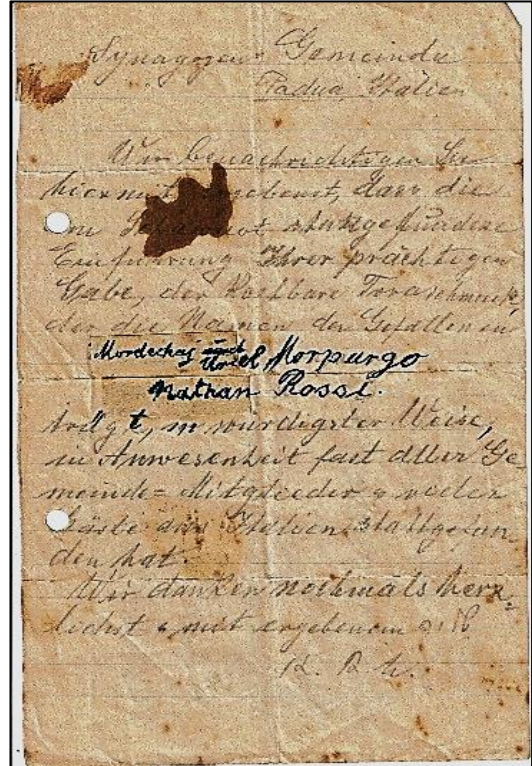 Synagogen Gemeinde
Padua, Italien
Wir benachrichtigen Sie
hiermit ergebenst, dass die
stattgefundene
Einführung Ihrer prächtigen
Gabe, der kostbare Toraschmuck,
der die Namen der Gefallenen
Mordechaj Uriel Morpurgo
Nathan Rossi.
trägt, in würdigster Weise,
in Anwesenheit fast aller Ge
meinde=Mitglieder & vieler
Gäste aus Italien stattgefun
den hat.
Wir danken nochmals herz=
lichst & mit ergebenem